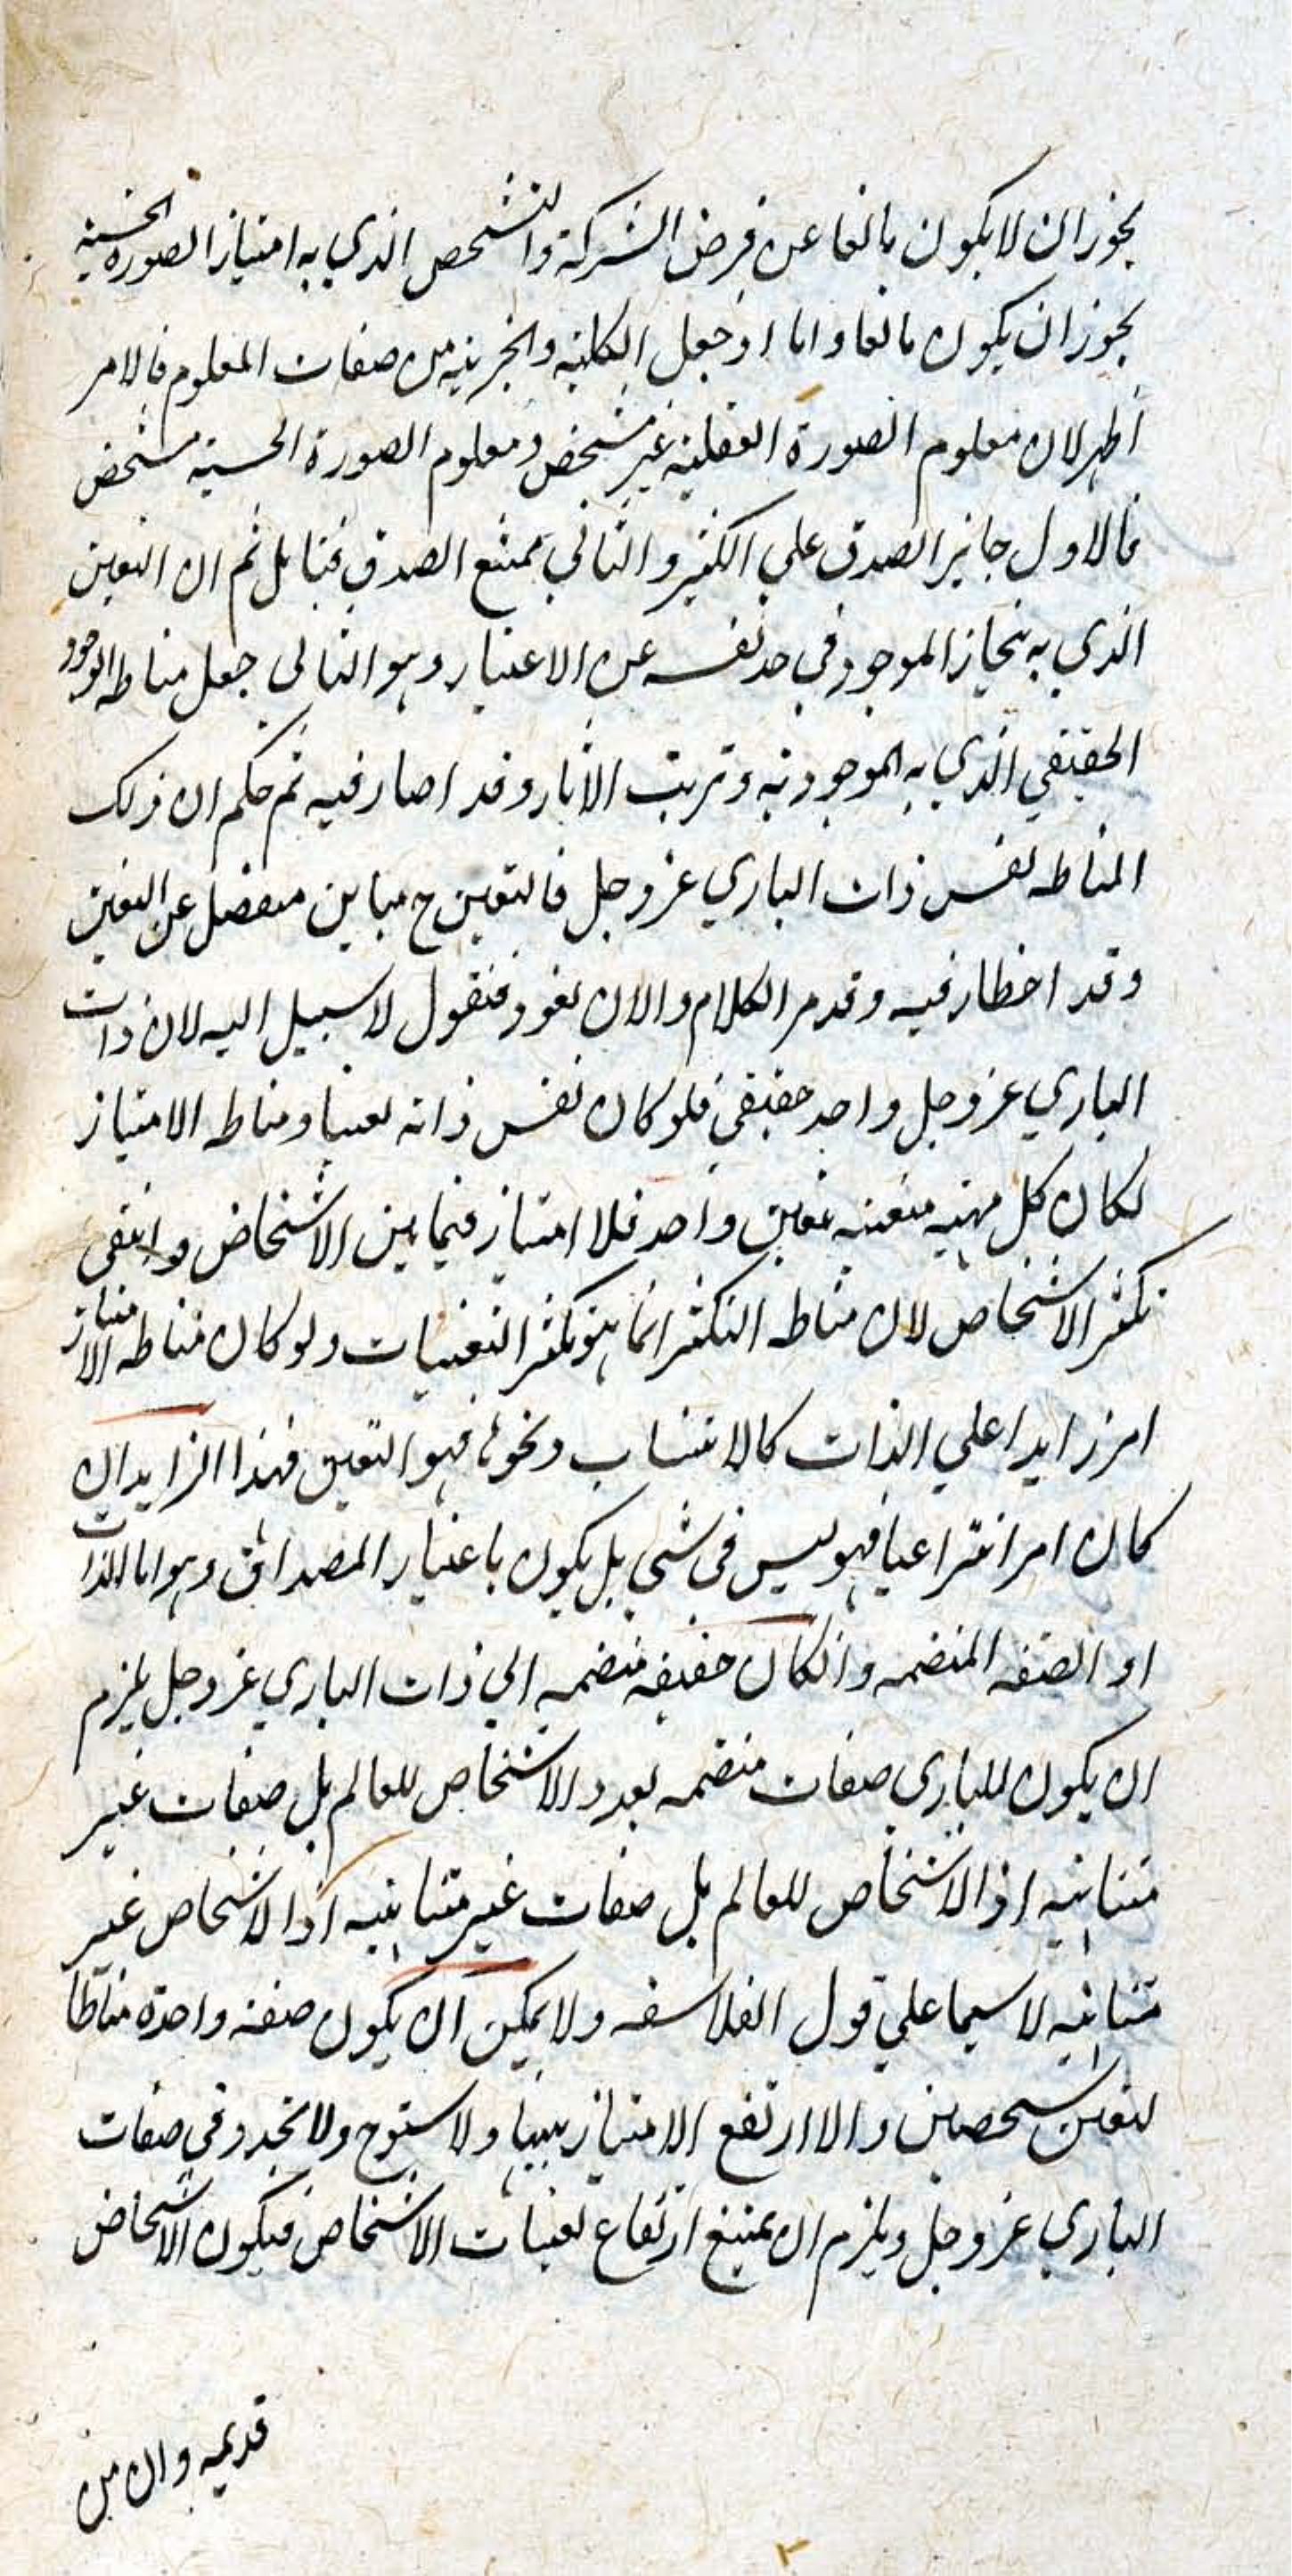 يجوز ان لا يكون مانعا عن فرض الشركة والتشخص الذي به امتياز الصورة الحسية
يجوز ان يكون مانعا واما اذ جعل الكلية والجزئية من صفات المعلوم فالامر
اظهر لان معلوم الصورة العقلية غير مشخص ومعلوم الصورة الحسية مشخص
فالاول جايز الصدق علي الكثير والثاني ممتنع الصدق فتامل ثم ان التعين
الذي به ينحاز الموجود في حد نفسه عن الاغيار وهو الثاني جعل مناطه الوجود
الحقيقي الذي به الموجودية وترتب الاثار وقد اصار فيه ثم حكم ان ذلك
المناط نفس ذات الباري عز وجل فالتعين ح مباين منفصل عن التعين
وقد اخطأ فيه وقد مر الكلام والان نعود فنقول لا سبيل اليه لان ذات
الباري عز وجل واحد حقيقي فلو كان نفس ذاته تعينا ومناط الامتياز
لكان كل مهية متعينة بتعين واحد فلا امتياز فيما بين الاشخاص وانتفي
تكثر الاشخاص لان مناط التكثر انما هو تكثر التعينات ولو كان مناط الامتياز
امر زايدا علي الذات كالانتساب ونحوه فهو التعين فهذا الزايد ان
كان امر انتزاعيا فهو ليس في شي بل يكون باعتبار المصداق وهو اما الذات
او الصفه المنضمه وانكان حقيقه منضمه الي ذات الباري عز وجل يلزم
ان يكون للباري صفات منضمه بعدد الاشخاص للعالم بل صفات غير
متناهيه اذ الاشخاص للعالم بل صفات غير متناهيه اذ الاشخاص غير
متناهيه لا سيما علي قول الفلاسفه ولا يمكن ان يكون صفة واحدة مناطا
لتعين شخصين والا ارتفع الامتياز بينهما ولا ولا تجدد في صفات
الباري عز وجل ويلزم ان يمتنع ارتفاع تعينات الاشخاص فيكون الاشخاص
قديمه وان من